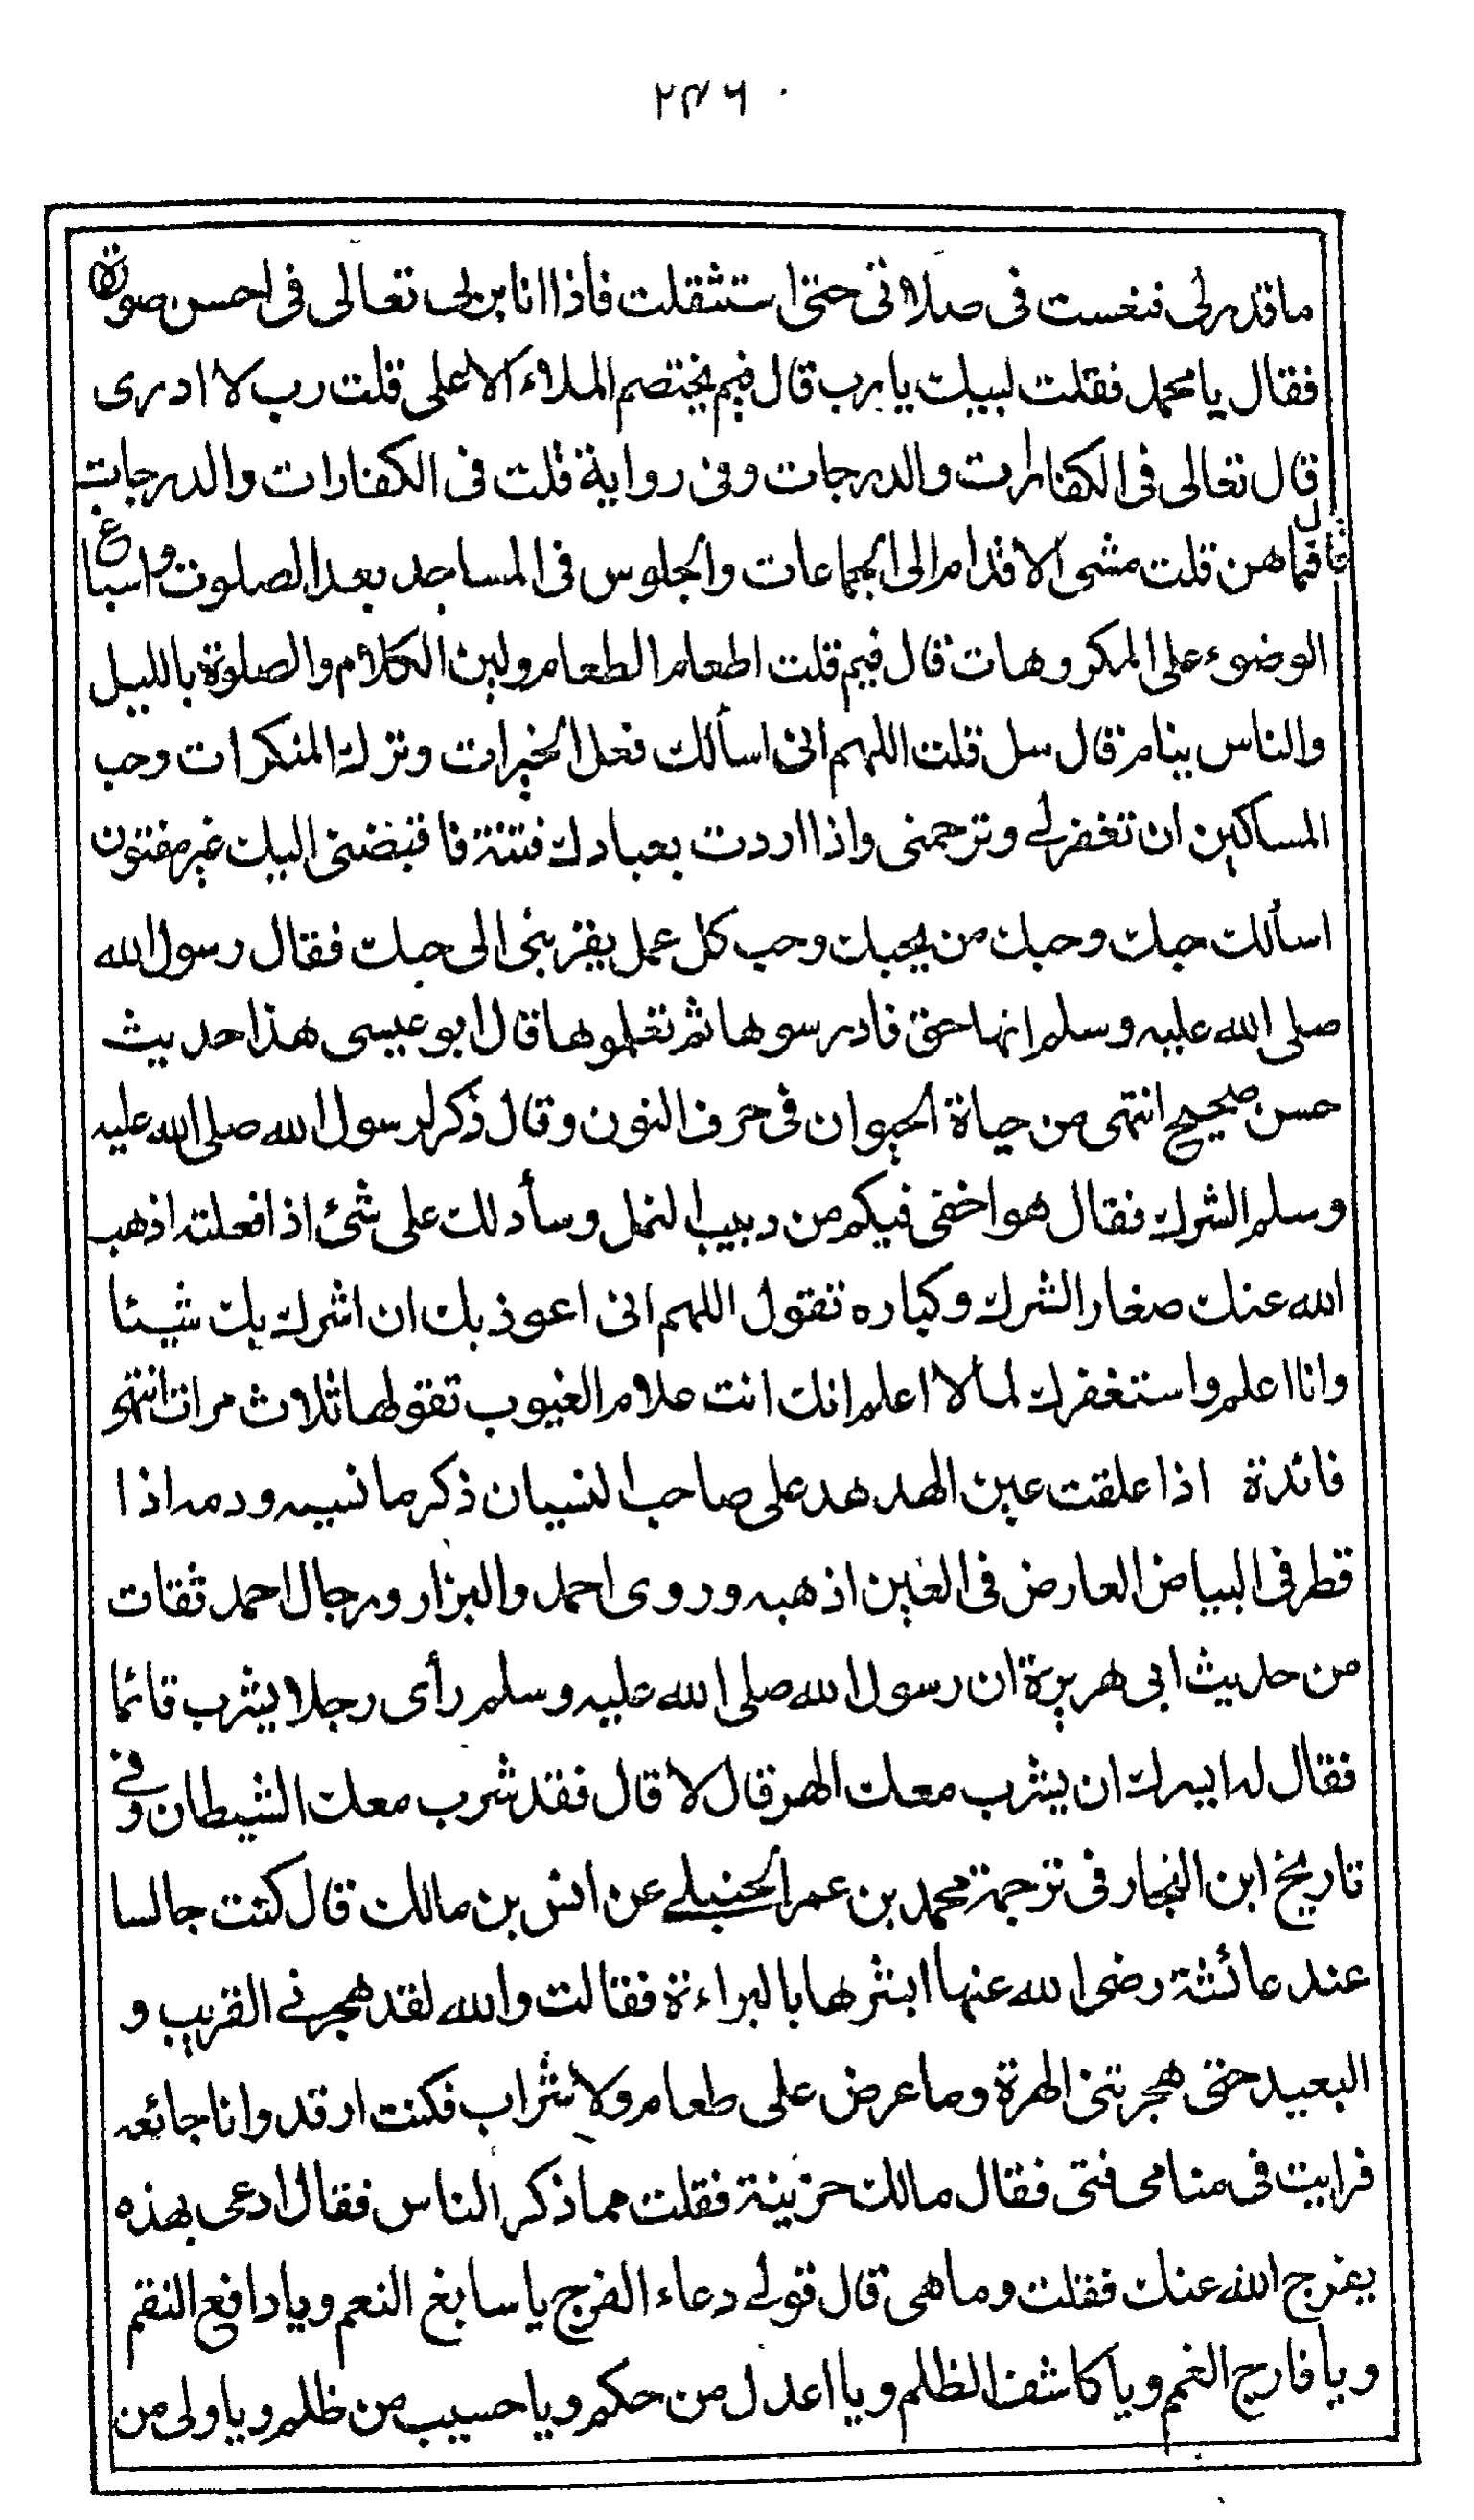 ٢٣٦
ما قدر لى فنعست فى صلاتى حتى استثقلت فاذا انا بربى تعالى فى احسن صورة
فقال يا محمد فقلت لبيك يا رب قال فيم يختصم الملاء الاعلى قلت رب لا ادرى
قال تعالى فى الكفارات والدرجات وفى رواية قلت فى الكفارات والدرجات
قال فما هن قلت مشى الاقدام الى الجماعات والجلوس فى المساجد بعد الصلوت واسباغ
الوضوء على المكروهات قال فيم قلت اطعام الطعام ولين الكلام والصلوة بالليل
والناس ينام قال سل قلت اللهم انى اسألك فعل الخيرات وترك المنكرات وحب
المساكين ان تغفرلى وترحمنى واذا اردت بعبادك فتنة فاقبضنى اليك غير مفتون
اسألك حبك وحبك من يحبك وحب كل عمل يقربنى الى حبك فقال رسول الله
صلى الله عليه وسلم انها حق فادرسوها ثم تعلموها قال ابو عيسى هذا حديث
حسن صحيح انتهى من حياة الحيوان فى حرف النون وقال ذكر لرسول الله صلى الله عليه
وسلم الشرك فقال هو اخفى فيكم من دبيب النمل وسأدلك على شئ اذا فعلته اذهب
الله عنك صغار الشرك وكباره تقول اللهم انى اعوذ بك ان اشرك بك شيئا
وانا اعلم واستغفرك لما لا اعلم انك انت علام الغيوب تقولها ثلاث مرات انتهى
فائدة اذا علقت عين الهدهد على صاحب النسيان ذكر ما نسيه ودمه اذا
قطر فى البياض العارض فى العين اذهبه وروى احمد والبزار ورجال احمد ثقات
من حديث ابى هريرة ان رسول الله صلى الله عليه وسلم رأى رجلا يشرب قائما
فقال له ايسرك ان يشرب معك الهر قال لا قال فقد شرب معك الشيطان وفى
تاريخ ابن النجار فى ترجمة محمد بن عمر الحنبلى عن انس بن مالك قال كنت جالسا
عند عائشة رضى الله عنها ابشرها بالبراءة فقالت والله لقد هجرنى القريب و
البعيد حتى هجرتنى الهرة وما عرض على طعام ولا شراب فكنت ارقد وانا جائعه
فرايت فى منامى فتى فقال مالك حزينة فقلت مما ذكر الناس فقال ادعى بهذه
يفرج الله عنك فقلت وما هى قال قولى دعاء الفرج يا سابغ النعم ويا دافع النقم
ويا فارج الغم ويا كاشف الظلم ويا اعدل من حكم ويا حسيب من ظلم ويا ولى من